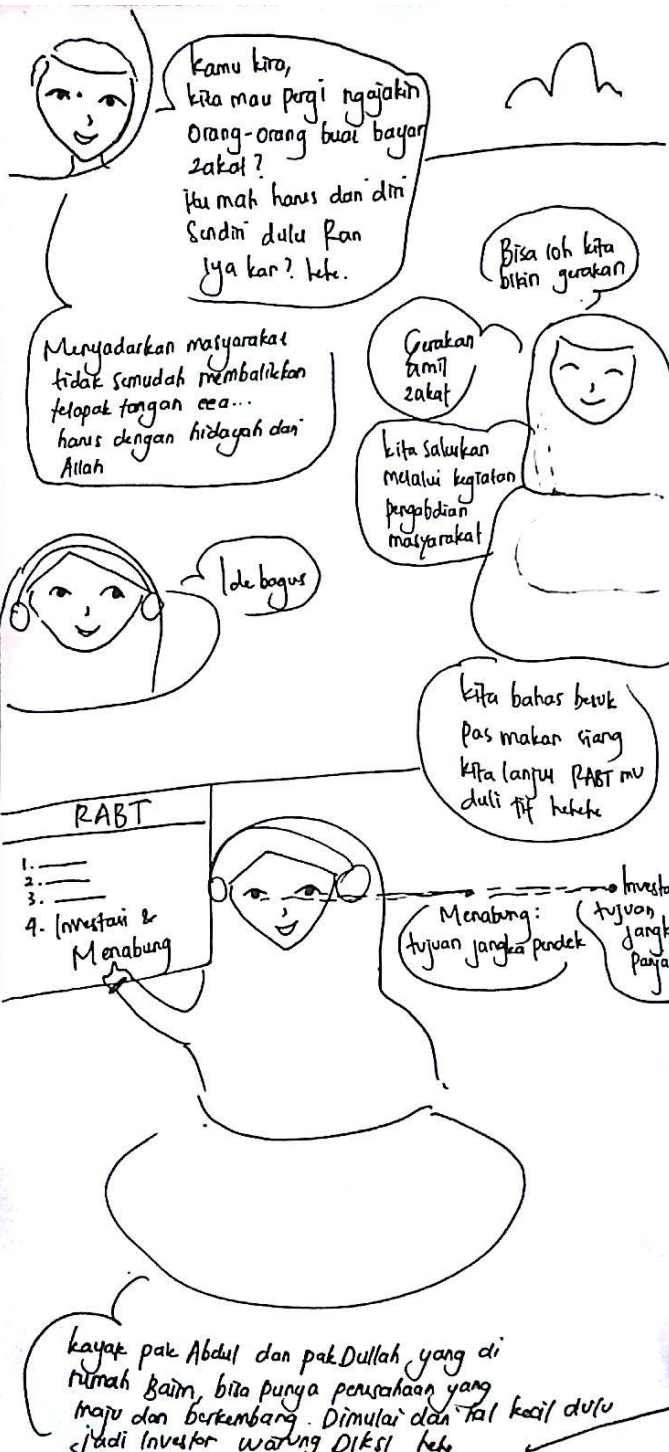 Kamu kira,
kita mau pergi ngajakin
orang-orang buat bayar
zakat?
Itu mah harus dari diri
Sendiri dulu Ran
Iya kan? hehe.
Menyadarkan masyarakat
tidak semudah membalikkan
telapak tangan eea...
harus dengan hidayah dari
Allah
Bisa loh kita
bikin gerakan
Gerakan
amil
zakat
kita salurkan
melalui kegiatan
pengabdian
masyarakat
Ide bagus
kita bahas besuk
pas makan siang
kita lanjut RABT mu
duli hehehe
RABT
1.
2.
3.
4. Investasi &
Menabung
Menabung:
tujuan jangka pendek
Investa
tujuan
jangk
Panja
kayak pak Abdul dan pak Dullah yang di
rumah Baim, bisa punya perusahaan yang
maju dan berkembang. Dimulai dari hal kecil dulu
jadi Investor warung DIKSI hehe